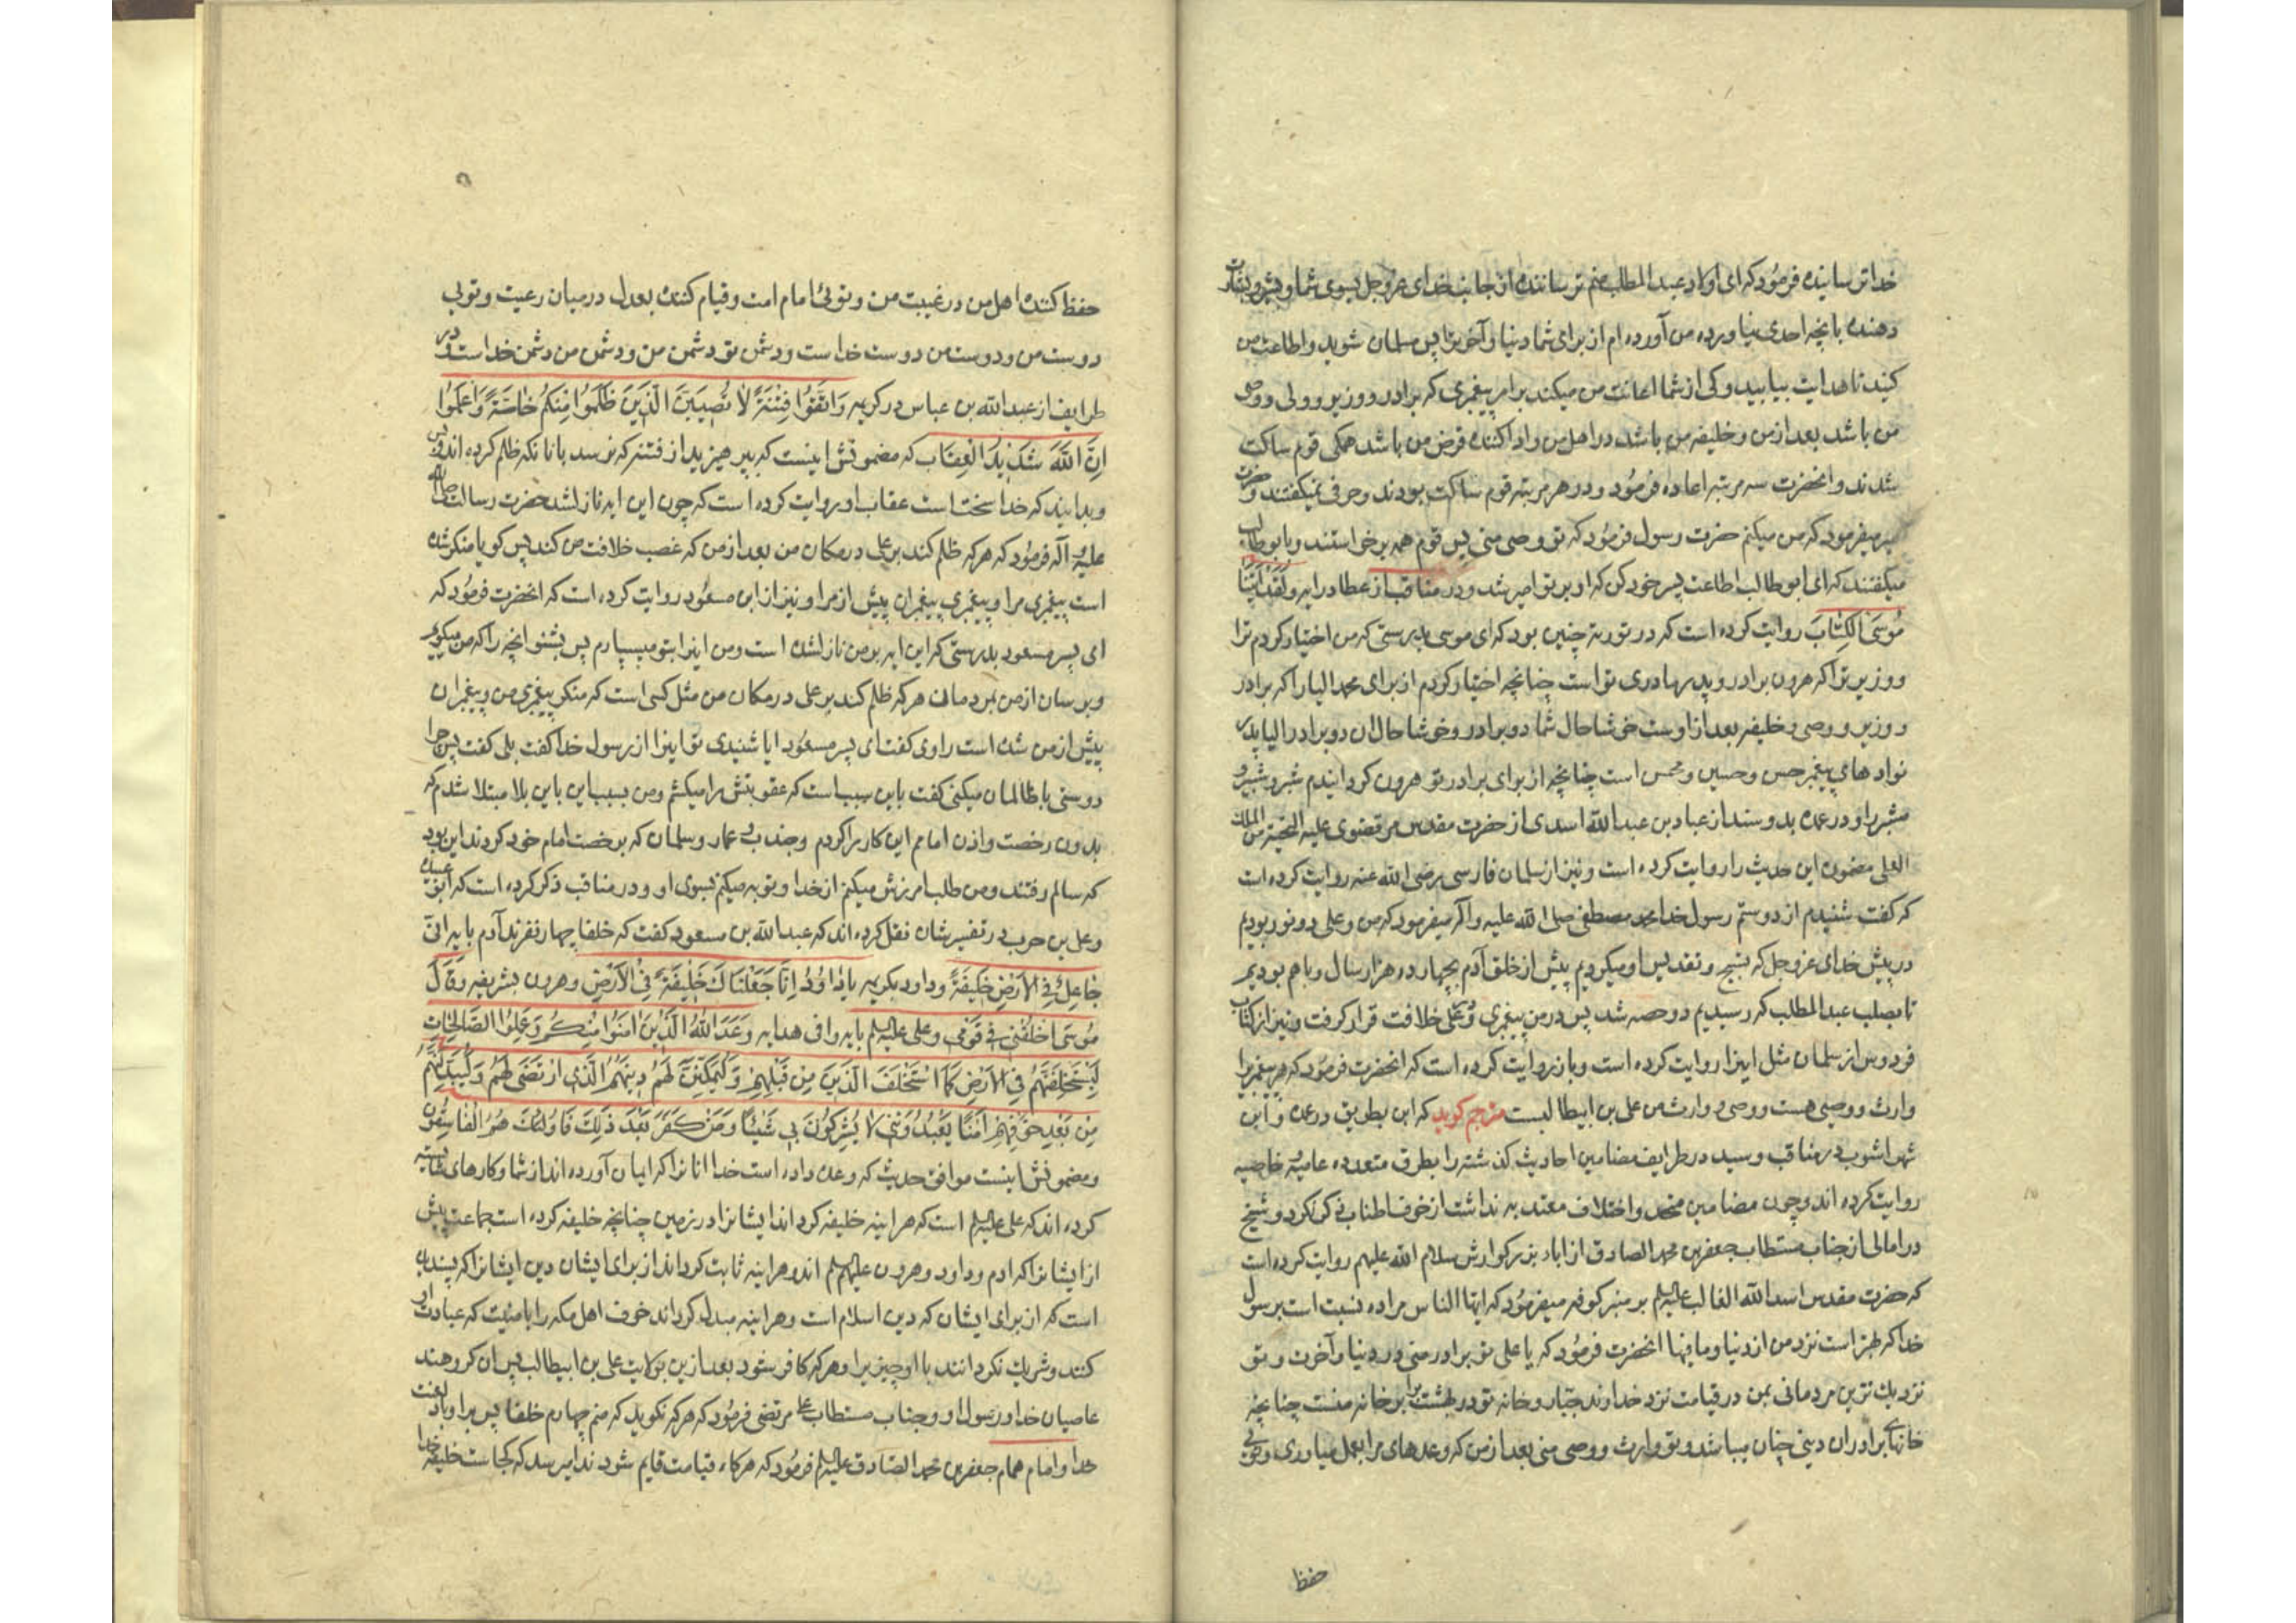 خدا ترسانیده فرمود که ای اولاد عبد المطلب منم ترساننده از جانب خدای عزوجل بسوی شما و بشارت
دهنده بانچه احدی نیاورده من آورده ام از برای شما دنیا و آخرترا پس مسلمان شوید و اطاعت من
کنید تا هدایت بیابید و کی از شما اعانت من میکند بر امر پیغمبری که برادر و وزیر و ولی و وصی
من باشد بعد از من و خلیفه من باشد در اهل من و ادا کننده قرض من باشد همکی قوم ساکت
شدند و انحضرت سه مرتبه اعاده فرمود و در هر مرتبه قوم ساکت بودند و حرفی نمیکفتند و حضرت
میفرمود که من میکنم حضرت رسول فرمود که تو وصی منی پس قوم همه برخواستند و بابو طالب
میکفتند که ای ابو طالب اطاعت پسر خود کن که او بر تو امیر شد و در مناقب از عطا در ایه وَلَقَدْ آتَيْنَا
مُوسَى الْكِتَابَ روایت کرده است که در توریة چنین بود که ای موسی بدرستی که من اختیار کردم ترا
و وزیر ترا که هرون برادر و پدر مادری تو است چنانچه اختیار کردم از برای محمد الیا را که برادر
و وزیر و وصی و خلیفه بعد از اوست خوشا حال شما دو برادر و خوشا حال ان دو برادر الیا پدر
نواده های پیغمبر حسن و حسین و محسن است چنانچه از برای برادر تو هرون کردانیدم شبر و شبیر و
مشبر را و در عمده بدو سند از عباد بن عبد الله اسدی از حضرت مقدس مرتضوی علیه التحیة من الملک
العلی مضمون این حدیث را روایت کرده است و نیز از سلمان فارسی رضی الله عنه روایت کرده است
که کفت شنیدم از دوستم رسول خدا محمد مصطفی صلی الله علیه و آله میفرمود که من و علی دو نور بودیم
در پیش خدای عزوجل که تسبیح و تقدیس او میکردیم پیش از خلق آدم بچهارده هزار سال و باهم بودیم
تا بصلب عبد المطلب که رسیدیم دو حصه شد پس در من پیغمبری و در علی خلافت قرار کرفت و نیز از کتاب
فردوس از سلمان مثل اینرا روایت کرده است و باز روایت کرده است که انحضرت فرمود که هر پیغمبریرا
وارث و وصیی هست و وصی و وارث من علی بن ابیطالبست مترجم کوید که ابن بطریق در عمده و ابن
شهر اشوب در مناقب و سید در طرایف مضامین احادیث کذشته را بطرق متعدده عامیه و خاصیه
روایت کرده اند و چون مضامین متحد و اختلاف معتد به نداشت از خوف اطناب ذکر نکرد و شیخ
در امالی از جناب مستطاب جعفر بن محمد الصادق از اباء بزرکوارش سلام الله علیهم روایت کرده است
که حضرت مقدس اسد الله الغالب علیه السلم بر منبر کوفه میفرمود که ایها الناس مرا ده نسبت است برسول
خدا که بهتر است نزد من از دنیا و مافیها انحضرت فرمود که یا علی تو برادر منی در دنیا و آخرت و تو
نزدیک ترین مردمانی بمن در قیامت نزد خداوند جبار و خانه تو در بهشت برابر خانه منست چنانچه
خانهای برادران دینی چنان میباشد و تو وارث و وصی منی بعد از من که وعدهای مرا بعمل میاوری و توئی
حفظ
حفظ کننده اهل من در غیبت من و توئی امام امت و قیام کننده بعدل در میان رعیت و توئی
دوست من و دوست من دوست خداست و دشمن تو دشمن من و دشمن من دشمن خداست و در
طرایف از عبد الله بن عباس در کریمه وَاتَّقُوا فِتْنَةً لَا تُصِيبَنَّ الَّذِينَ ظَلَمُوا مِنْكُمْ خَاصَّةً وَاعْلَمُوا
اِنَّ اللَّهَ شَدِيدُ الْعِقَاب که مضمونش اینست که بپرهیزید از فتنه که نرسد بانانکه ظلم کرده اند و بس
و بدانید که خدا سخت است عقاب او روایت کرده است که چون این ایه نازل شد حضرت رسالت صلی الله
علیه و آله فرمود که هر که ظلم کند بر علی در مکان من بعد از من که غصب خلافت من کند پس کویا منکر شده
است پیغمبری مرا و پیغمبری پیغمبران پیش از مرا و نیز از ابن مسعود روایت کرده است که انحضرت فرمود که
ای پسر مسعود بدرستی که این ایه بر من نازل شده است و من اینرا بتو میسپارم پس بشنو انچه را که من میکویم
و برسان از من بمردمان هر که ظلم کند بر علی در مکان من مثل کسی است که منکر پیغمبری من و پیغمبران
پیش از من شده است راوی کفت ای پسر مسعود ایا شنیدی تو اینرا از رسول خدا کفت بلی کفت پس چرا
دوستی با ظالمان میکنی کفت باین سبب است که عقوبتش را میکشم و من بسبب این باین بلا مبتلا شدم که
بدون رخصت و اذن امامم این کار را کردم و جندب و عمار و سلمان که برخصت امام خود کردند این بود
که سالم رفتند و من طلب امرزش میکنم از خدا و توبه میکنم بسوی او و در مناقب ذکر کرده است که ابو عبیده
و علی بن حرب در تفسیرشان نقل کرده اند که عبد الله بن مسعود کفت که خلفا چهار نفرند آدم بایه انی
جَاعِلٌ فِي الْاَرْضِ خَلِيفَةً و داود بکریمه يَا دَاوُدُ اِنَّا جَعَلْنَاكَ خَلِيفَةً فِي الْاَرْضِ و هرون بشریفه وَقَالَ
مُوسَى اخْلُفْنِي فِي قَوْمِي و علی علیه السلم بایه وافی هدایه وَعَدَ اللَّهُ الَّذِينَ آمَنُوا مِنْكُمْ وَعَمِلُوا الصَّالِحَاتِ
لَيَسْتَخْلِفَنَّهُمْ فِي الْاَرْضِ كَمَا اسْتَخْلَفَ الَّذِينَ مِنْ قَبْلِهِمْ وَلَيُمَكِّنَنَّ لَهُمْ دِينَهُمُ الَّذِي ارْتَضَى لَهُمْ وَلَيُبَدِّلَنَّهُمْ
مِنْ بَعْدِ خَوْفِهِمْ اَمْنًا يَعْبُدُونَنِي لَا يُشْرِكُونَ بِي شَيْئًا وَمَنْ كَفَرَ بَعْدَ ذَلِكَ فَاُولَئِكَ هُمُ الْفَاسِقُونَ
و مضمونش اینست موافق حدیث که وعده داده است خدا انانرا که ایمان آورده اند از شما و کارهای شایسته
کرده اند که علی علیه السلم است که هراینه خلیفه کرداند ایشانرا در زمین چنانچه خلیفه کرده است جماعت پیش
از ایشانرا که ادم و داود و هرون علیهم السلم اند و هراینه ثابت کرداند از برای ایشان دین ایشانرا که پسندیده
است که از برای ایشان که دین اسلام است و هراینه مبدل کرداند خوف اهل مکه را بامنیت که عبادت او
کنند و شریک نکردانند با او چیزیرا و هر که کافر شود بعد از این بولایت علی بن ابیطالب پس ان کروهند
عاصیان خدا و رسول او و جناب مستطاب علی مرتضی فرمود که هر که نکوید که منم چهارم خلفا پس بر او باد لعنت
خدا و امام همام جعفر بن محمد الصادق علیه السلم فرمود که هرکاه قیامت قایم شود ندا میرسد که کجاست خلیفه خدا